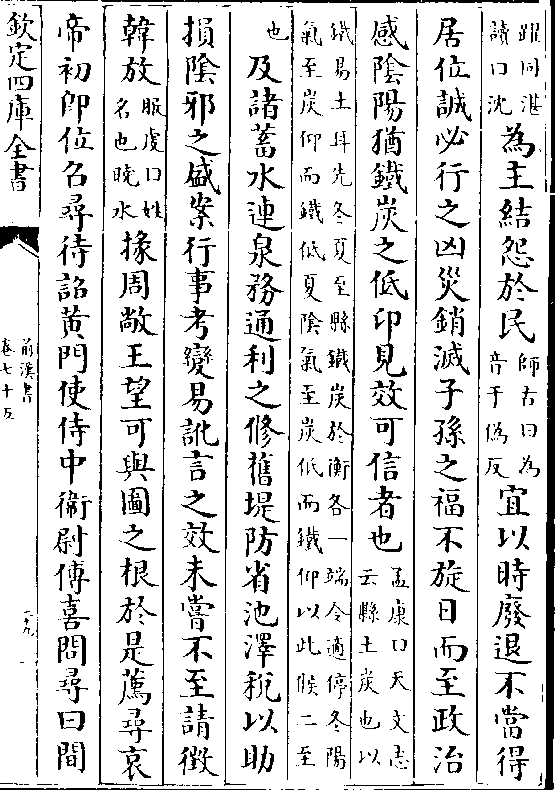 躍同湛
讀曰沈
為主結怨於民
師古曰為
音于偽反
宜以時廢退不當得
居位誠必行之凶災銷滅子孫之福不旋日而至政治
感陰陽猶鐵炭之低卬見效可信者也
孟康曰天文志
云縣土炭也以
鐵易土耳先冬夏至縣鐵炭於衡各一端令適停冬陽
氣至炭仰而鐵低夏陰氣至炭低而鐵仰以此候二至
也
及諸蓄水連泉務通利之修舊堤防省池澤稅以助
損陰邪之盛案行事考變易訛言之效未嘗不至請徵
韓放
服虔曰姓
名也曉水
掾周敞王望可與圖之根於是薦尋哀
帝初即位召尋待詔黃門使侍中衛尉傅喜問尋曰間
欽定四庫全書
前漢書
卷七十五